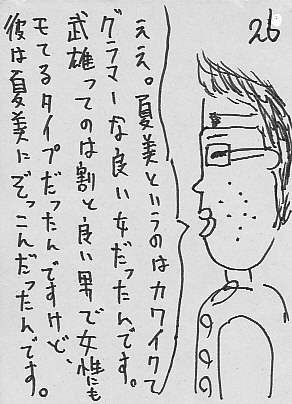 26
ええ。夏美というのはカワイクて
グラマーな良い女だったんです。
武雄ってのは割と良い男で女性にも
モてるタイプだったんですけど、
彼は夏美にぞっこんだったんです。